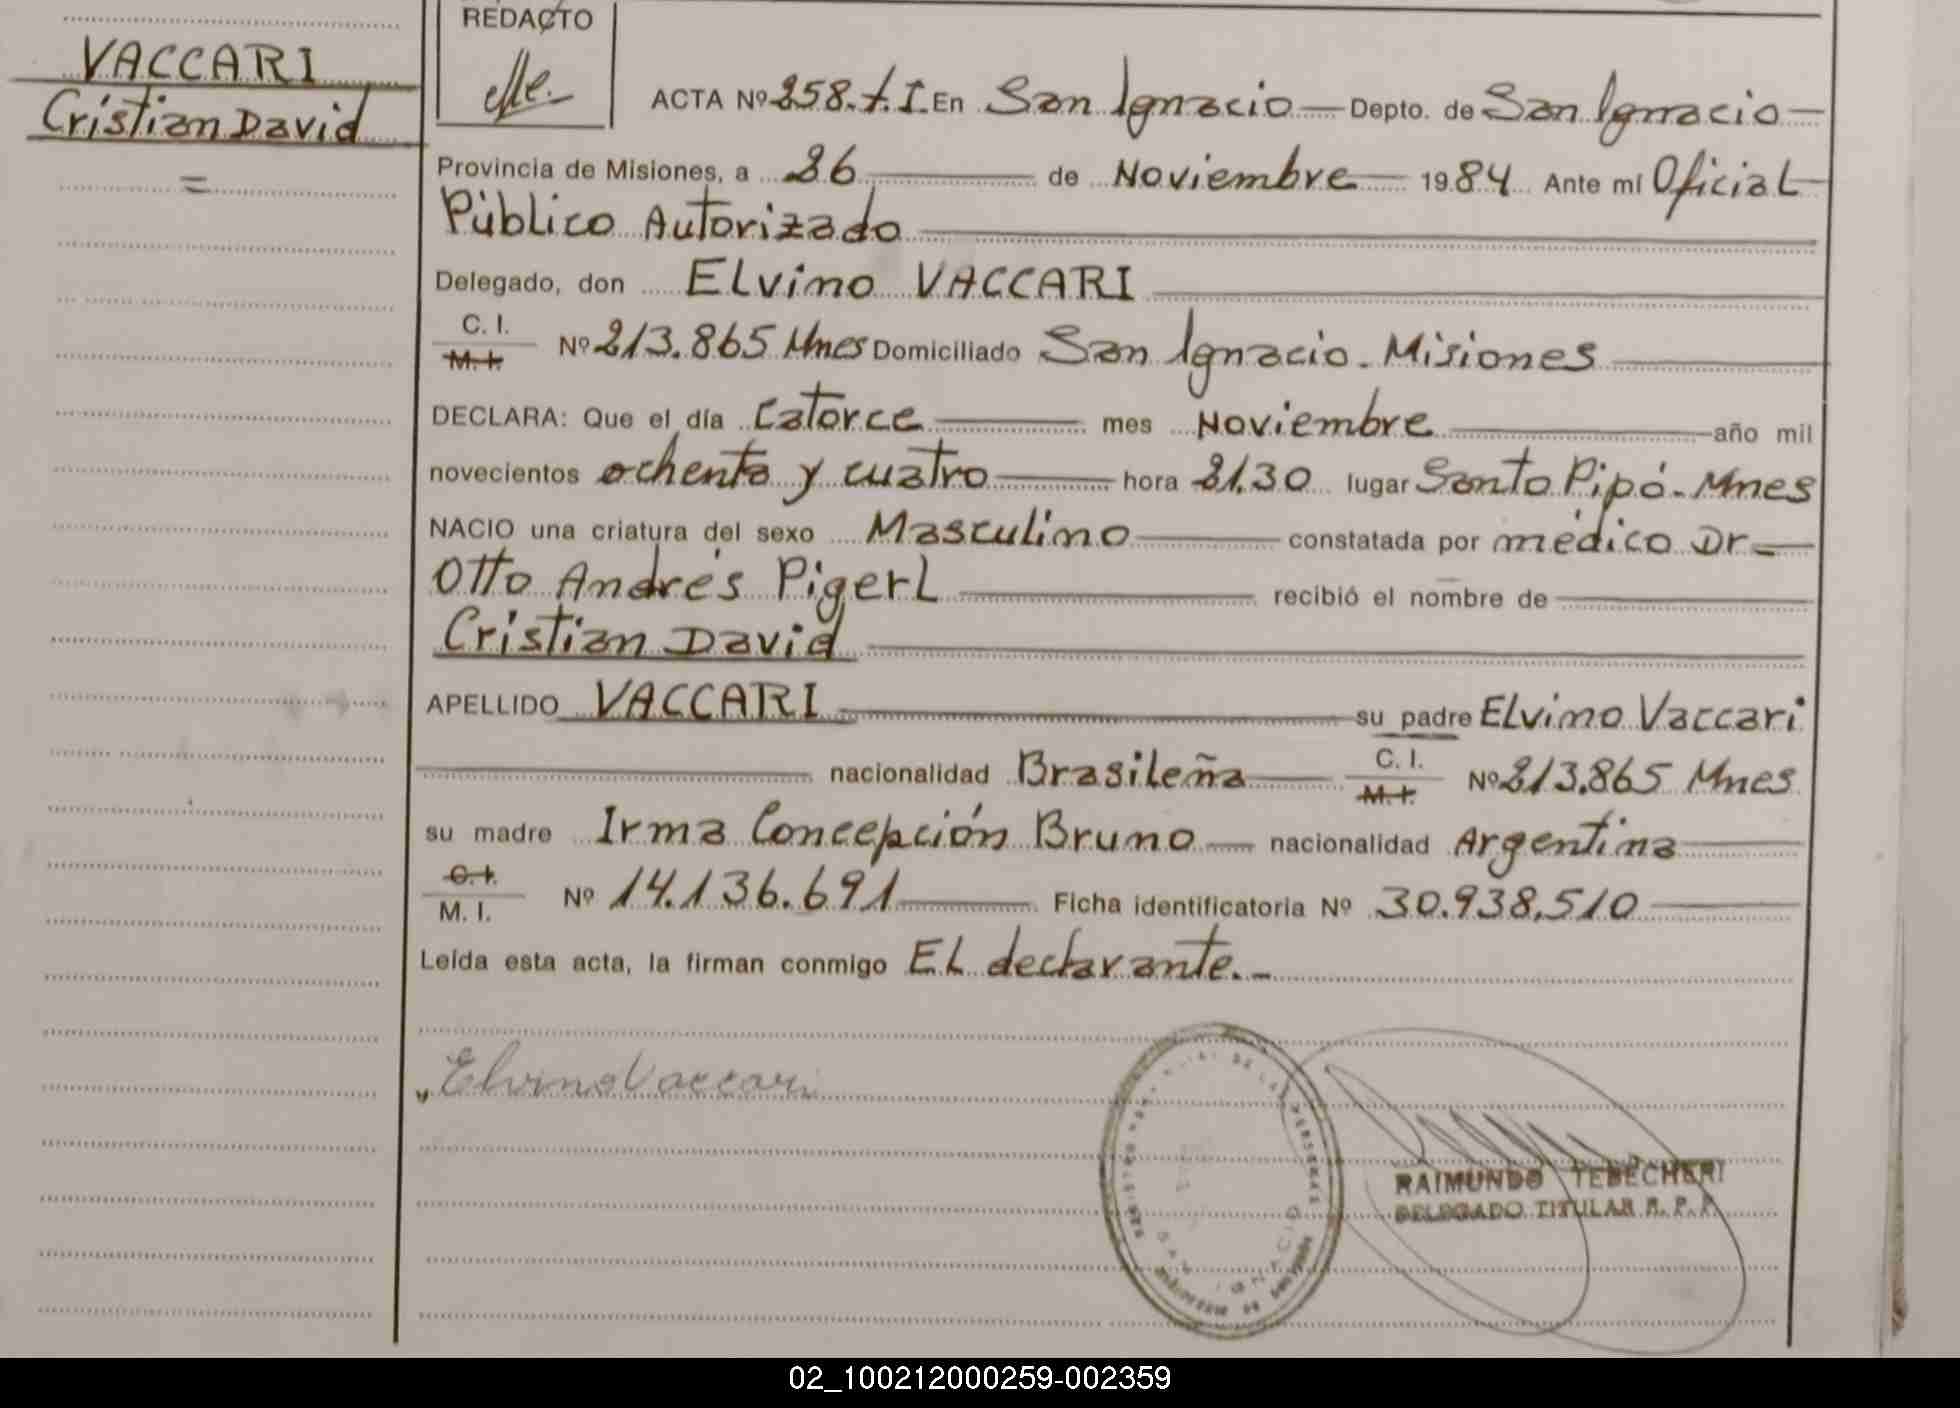 VACCARI
Cristian David
=
REDACTO
ACTA Nº 258.t.I. En San Ignacio Depto. de San Ignacio
Provincia de Misiones, a 26 de Noviembre 1984 Ante mí Oficial
Público Autorizado
Delegado, don ELvino VACCARI
C. I.
M. I. Nº 213.865 Mnes Domiciliado San Ignacio - Misiones
DECLARA: Que el día Catorce mes Noviembre año mil
novecientos ochenta y cuatro hora 21.30 lugar Santo Pipó - Mnes
NACIO una criatura del sexo Masculino constatada por médico Dr
Otto Andrés Pigerl recibió el nombre de
Cristian David
APELLIDO VACCARI su padre ELvino Vaccari
nacionalidad Brasileña C. I. M. I. Nº 213.865 Mnes
su madre Irma Concepción Bruno nacionalidad Argentina
C. I.
M. I. Nº 14.136.691 Ficha identificatoria Nº 30.938.510
Leída esta acta, la firman conmigo EL declarante.-
Elvino Vaccari
DE LAS PERSONAS
SAN IGNACIO
RAIMUNDO TEBECHERI
DELEGADO TITULAR R. P. P.
02_100212000259-002359